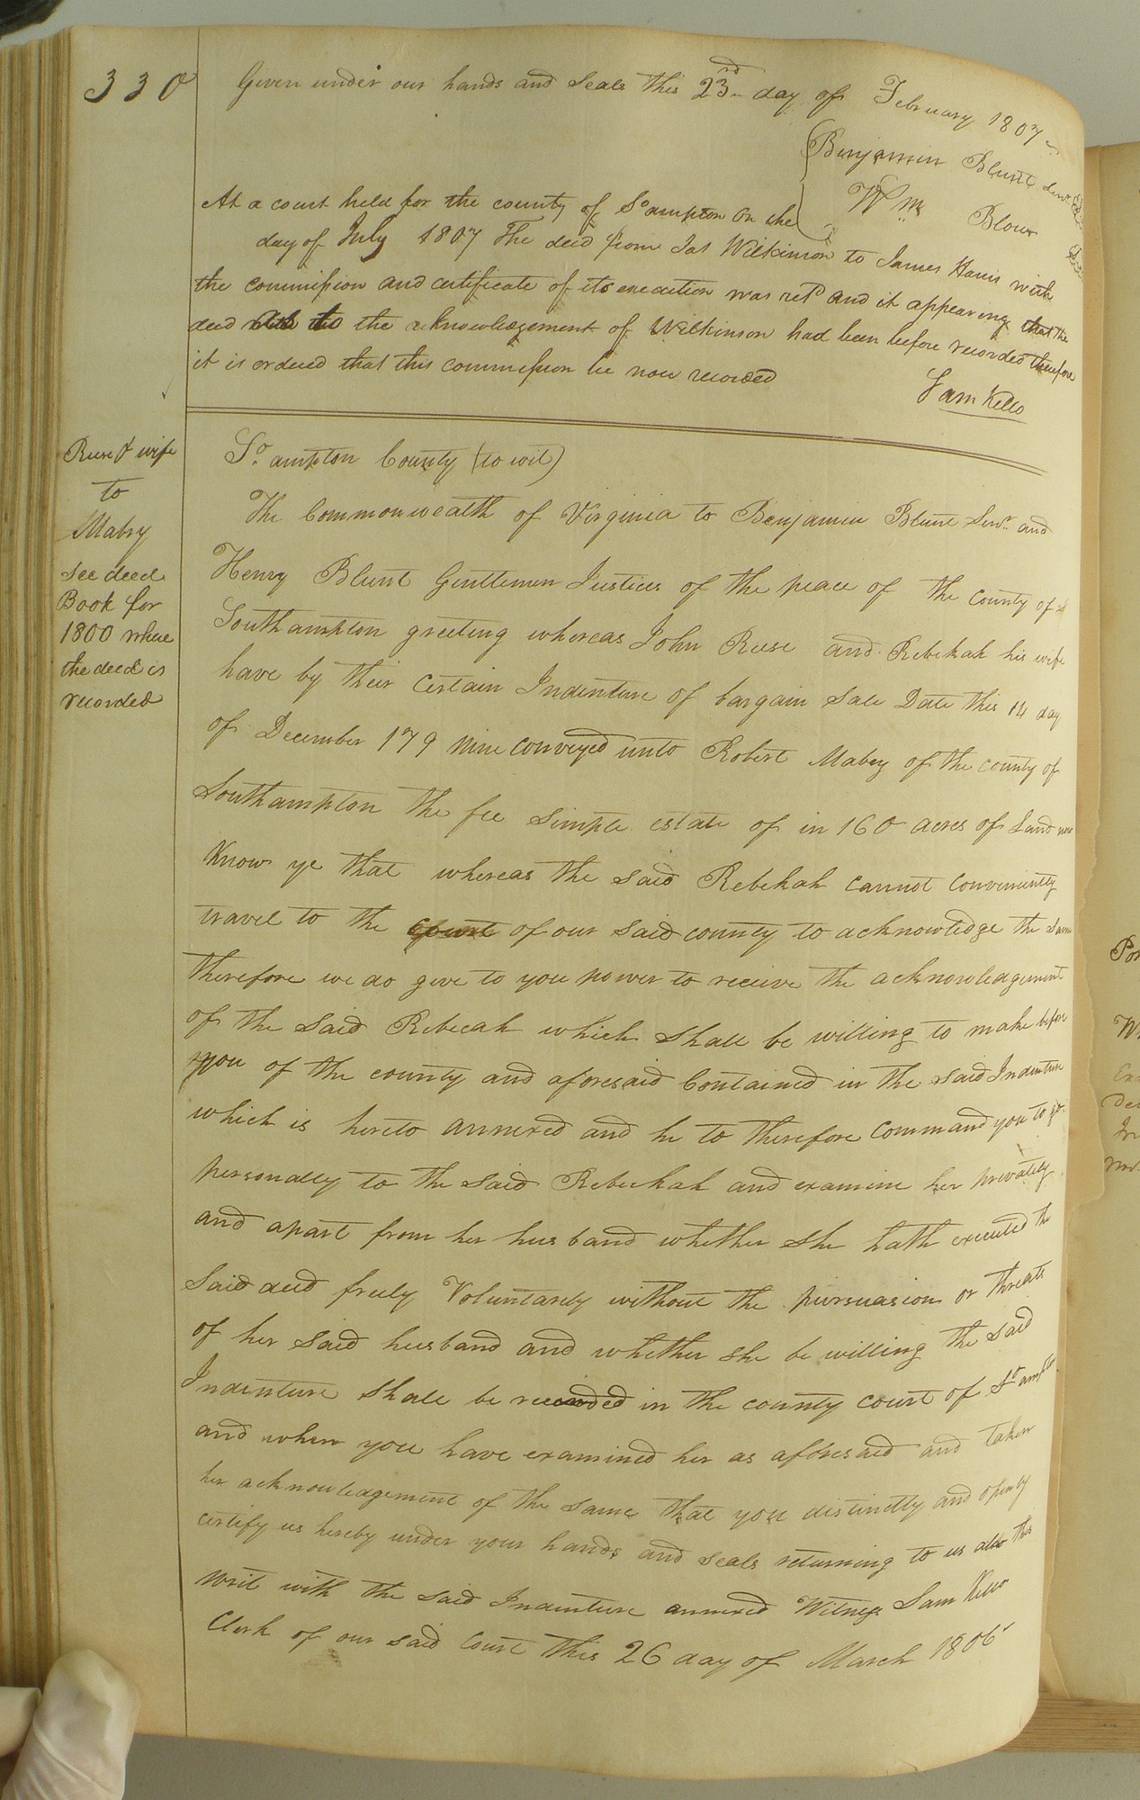 330
Given under our hands and Seals this 23rd day of February 1807
Benjamin Blunt Senr
Wm Blow
At a court held for the county of So ampton on the
day of July 1807 The deed from Jas Wilkinson to James Harris with
the commission and certificate of its execution was retd and it appearing that the
deed with the acknowledgement of Wilkinson had been before recorded therefore
it is ordered that this commission be now recorded
Sam Kello
Reese & wife
to
Mabry
See deed
Book for
1800 where
the deed is
recorded
So. ampton County (to wit)
The Commonwealth of Virginia to Benjamin Blunt Senr. and
Henry Blunt Gentlemen Justices of the peace of the county of
Southampton greeting whereas John Reese and Rebekah his wife
have by their certain Indenture of bargain Sale Date this 14 day
of December 179 nine conveyed unto Robert Mabry of the county of
Southampton the fee simple estate of in 160 acres of Land now
Know ye that whereas the said Rebekah cannot conveniently
travel to the court of our said county to acknowledge the same
therefore we do give to you power to receive the acknowledgement
of the said Rebecah which shall be willing to make before
you of the county and aforesaid Contained in the said Indenture
which is hereto annexed and he to therefore command you to go
personally to the said Rebeckah and examine her privately
and apart from her husband whether she hath executed the
said deed freely Voluntarely without the pursuasion or threats
of her said husband and whether she be willing the said
Indenture shall be recorded in the county court of So ampto
and when you have examined her as aforesaid and taken
her acknowledgement of the same that you distinctly and openly
certify us hereby under your hands and seals returning to us also this
writ with the said Indenture annexed Witness Sam Kello
Clerk of our said Court this 26 day of March 1806